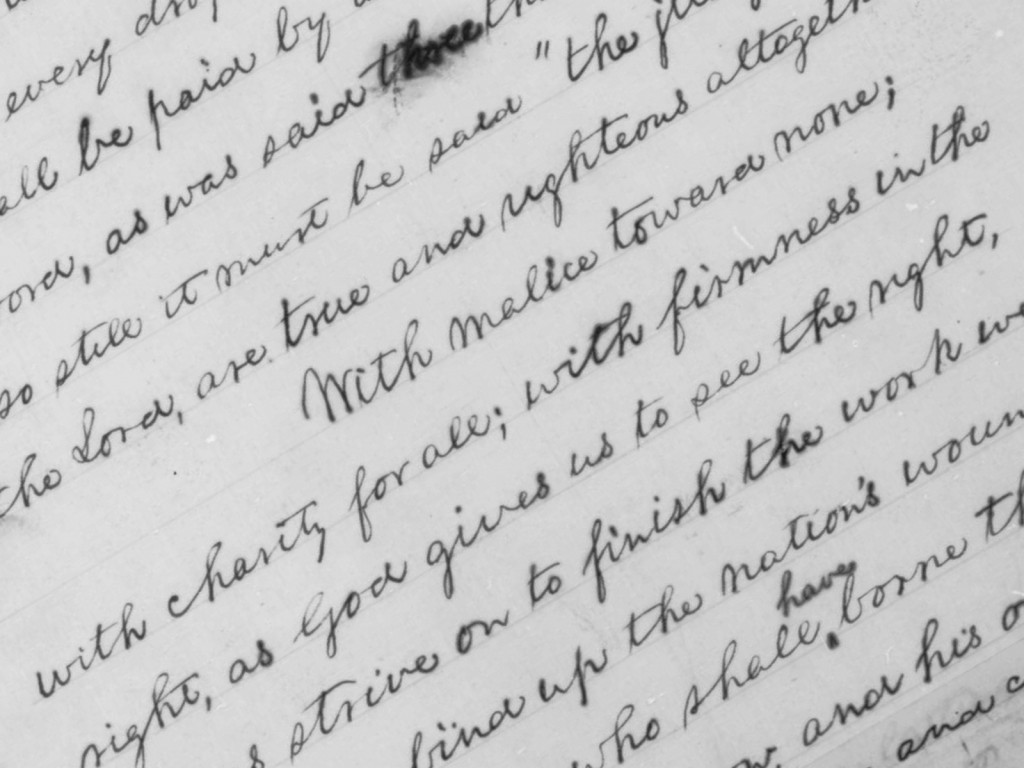 every drop
all be paid by
as was said three
so still it must be said "the
the Lord, are true and righteous altogeth
With malice toward none;
with charity for all; with firmness in the
right, as God gives us to see the right,
strive on to finish the work we
bind up the nation's woun
have
who shall borne th
and his
and